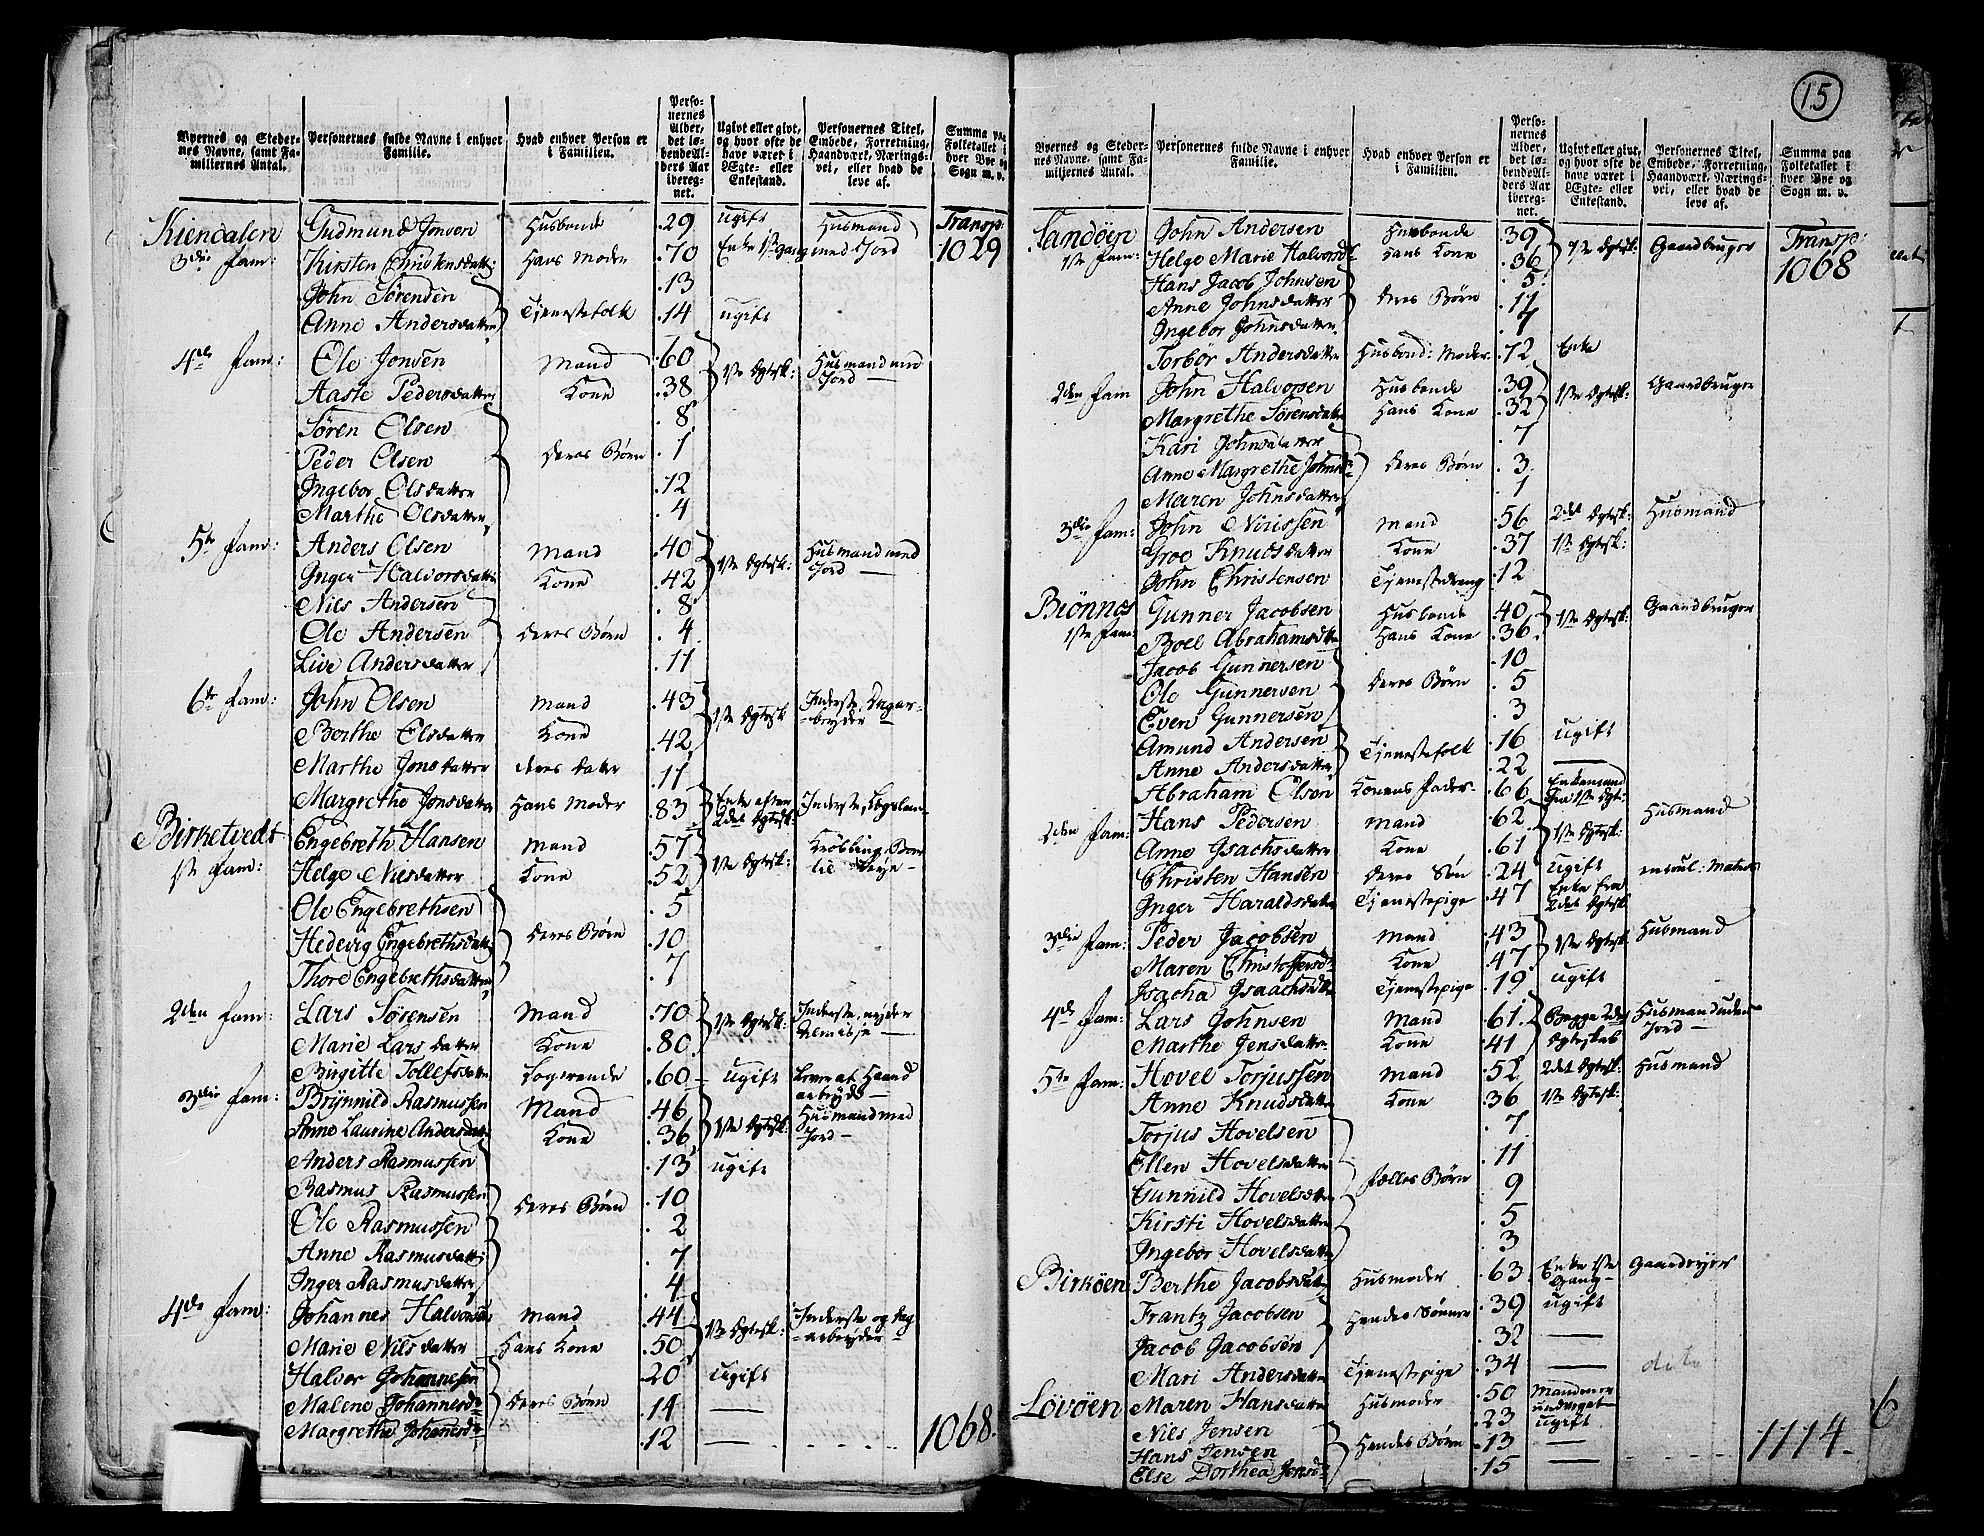 15
Byernes og Steder-
nes Navne, samt Fa-
miliernes Antal.
Personernes fulde Navne i enhver
Familie.
Hvad enhver Person er
i Familien.
Perso-
nernes
Alder,
det lø-
bende Al-
ders Aar
ibereg-
net.
Ugivt eller givt,
og hvor ofte de
have været i
Ægte- eller
Enkestand.
Personernes Titel,
Embede, Forretning,
Haandværk, Nærings-
vei, eller hvad de
leve af.
Summa paa
Folketallet i
hver Bye og
Sogn m. v.
Kiendalen Gudmund Jonson Husbonde 29 ugift Husmand Transp:
3die fam: Kirsten Christensdatter Hans Moder 70 Enke 1ste gang med Jord 1029
John Sörensen 13
Anne Andersdatter Tjenestefolk 14 ugift
4de fam: Ole Jonsen Mand 60 1ste Egtesk: Husmand med
Aaste Pedersdatter Kone 38 Jord
Sören Olsen 8
Peder Olsen deres Börn 1
Ingebor Olsdatter 12
Marthe Olsdatter 4
5te fam: Anders Olsen Mand 40 1ste Egtesk: Husmand med
Inger Halvorsdatter Kone 42 Jord
Nils Andersen 8
Ole Andersen deres Börn 4
Live Andersdatter 11
6te fam: John Olsen Mand 43 1ste Egtesk Inderste, Dagar-
Berthe Olsdatter Kone 42 beyder
Marthe Jonsdatter deres datter 11
Margrethe Jonsdatter Hans Moder 83 Enke efter 2det Egtesk: Inderste,
Birketvedt Engebreth Hansen Mand 57 1ste Egtesk:
1ste fam: Helge Nilsdatter Kone 52
Ole Engebrethsen 5
Hedevig Engebrethsdatter deres Börn 10
Thore Engebrethsdatter 7
2den fam: Lars Sörensen Mand 70 1ste Egtesk: Inderste, nyder
Marie Larsdatter Kone 80 Almisse
Birgitte Tollefsdatter Logerende 60 ugift Lever af Haand
arbeyde
3die fam: Brynnild Rasmussen Mand 46 1ste Egtesk: Husmand med
Anne Laurine Andersdatter Kone 36 Jord
Anders Rasmussen 13 ugift
Rasmus Rasmussen deres Börn 10
Ole Rasmussen 2
Anne Rasmusdatter 7
Inger Rasmusdatter 4
4de fam: Johannes Halvorsen Mand 44 1ste Egtesk: Inderste og dag
Marie Nilsdatter Hans Kone 50 arbeyder
Halvor Johannesen 20 ugift
Malene Johannesd: deres Börn 14 —
Margrethe Johannesd: 12 — 1068.
Byernes og Steder-
nes Navne, samt Fa-
miliernes Antal.
Personernes fulde Navne i enhver
Familie.
Hvad enhver Person er
i Familien.
Perso-
nernes
Alder,
det lø-
bende Al-
ders Aar
ibereg-
net.
Ugivt eller givt,
og hvor ofte de
have været i
Ægte- eller
Enkestand.
Personernes Titel,
Embede, Forretning,
Haandværk, Nærings-
vei, eller hvad de
leve af.
Summa paa
Folketallet i
hver Bye og
Sogn m. v.
Sandöen John Andersen Husbonde 39 1ste Egtesk: Gaardbruger Transp:
1ste fam: Helge Marie Halvorsd: Hans Kone 36 1068
Hans Jacob Johnsen 5
Anne Johnsdatter deres Börn 11
Ingebor Johnsdatter
Torbör Andersdatter Husbond: Moder 72 Enke
2den fam John Halvorsen Husbonde 39 1ste Egtesk: Gaardbruger
Margrethe Sörensdatter Hans Kone 32
Kari Johnsdatter 7
Anne Margrethe Johnsd: deres Börn 3
Maren Johnsdatter 1
3die fam: John Nirissen Mand 56 2det Egtesk: Husmand
Groe Knudsdatter Kone 37 1ste Egtesk:
John Christensen Tjenestedreng 12
Biönnes Gunner Jacobsen Husbonde 40 1ste Egtesk: Gaardbruger
1ste fam: Boel Abrahamsdtter Hans Kone 36
Jacob Gunnersen 10
Ole Gunnersen deres Börn 5
Even Gunnersen 3
Amund Andersen Tjenestefolk 16 ugift
Anne Andersdatter 22 —
Abraham Olsen Konens Fader 66 Enkemand
2den fam: Hans Pedersen Mand 62 1ste Egtesk: Husmand
Anne Isachsdatter Kone 61
Christen Hansen deres Sön 24 ugift
Inger Haraldsdatter Tjenestepige 47 Enke fra 2det Egtesk
3die fam: Peder Jacobsen Mand 43 1ste Egtesk Husmand
Maren Christoffersd: Kone 47
Isacha Isaachsdtter Tjenestepige 19 ugift
4de fam: Lars Johnsen Mand 61 Begge 2det Husmand uden
Marthe Jensdatter Kone 41 Egteskab Jord
5te fam: Hovel Torjussen Mand 52 2det Egtesk: Husmand
Anne Knudsdatter Kone 36 1ste Egtesk:
Torjus Hovelsen 7
Ellen Hovelsdatter 11
Gunnild Hovelsdatter fælles Börn 9
Kirsti Hovelsdatter 5
Ingebor Hovelsdatter 3
Birköen Berthe Jacobsdatter Husmoder 63 Enke 1ste Gang
Frantz Jacobsen Hendes Sönner 39 ugift
Jacob Jacobsen 32 —
Mari Andersdatter Tjenestepige 34 — dito
Lövöen Maren Hansdatter Husmoder 50
Nils Jensen 23 ugift
Hans Jensen Hendes Börn 13 —
Else Dorthea Jensd: 15 1114